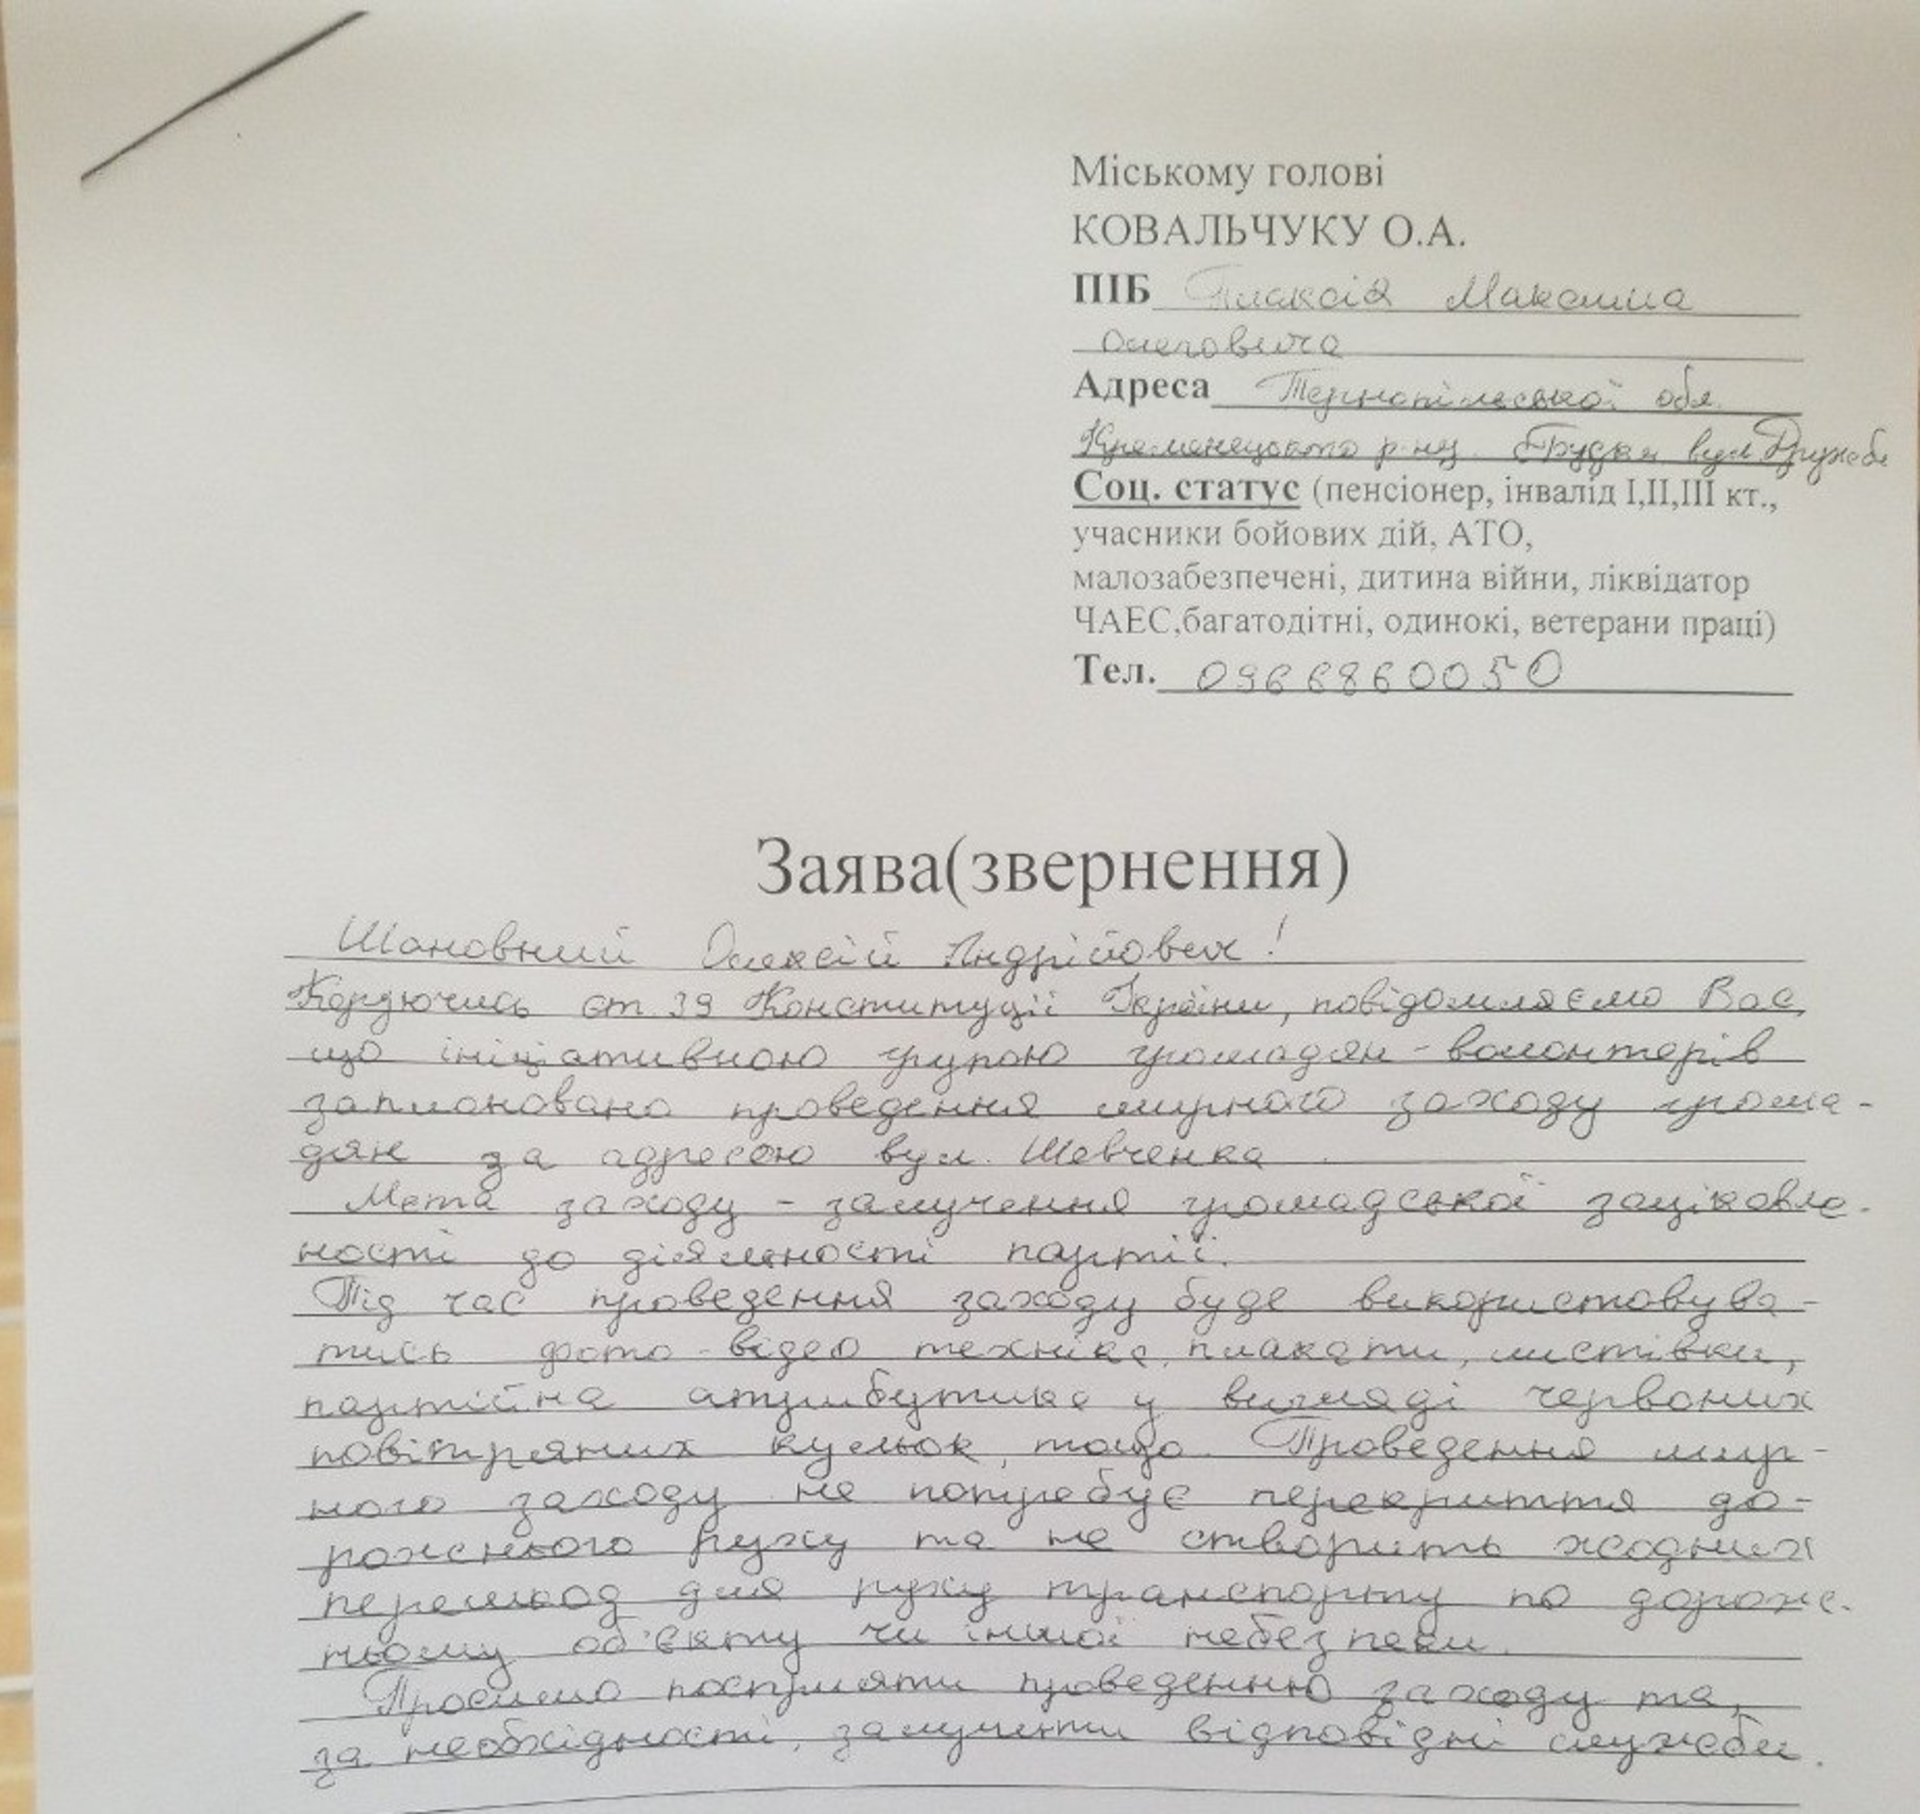 Міському голові
КОВАЛЬЧУКУ О.А.
ПІБ Плаксія Максима
Олеговича
Адреса Тернопільської обл.
Кременецького р-ну вул. Дружби
Соц. статус (пенсіонер, інвалід І,ІІ,ІІІ кт.,
учасники бойових дій, АТО,
малозабезпечені, дитина війни, ліквідатор
ЧАЕС,багатодітні, одинокі, ветерани праці)
Тел. 0966860050
Заява(звернення)
Шановний Олексій Андрійович!
Керуючись ст. 39 Конституції України, повідомляємо Вас,
що ініціативною групою громадян-волонтерів
заплановано проведення мирного заходу грома-
дян за адресою вул. Шевченка.
Мета заходу - залучення громадської зацікавле-
ності до діяльності партії.
Під час проведення заходу буде використовува-
тись фото-відео техніка, плакати, листівки,
партійна атрибутика у вигляді червоних
повітряних кульок, тощо. Проведення мир-
ного заходу не потребує перекриття до-
рожнього руху та не створить жодних
перешкод для руху транспорту по дорож-
ньому об'єкту чи іншої небезпеки.
Просимо посприяти проведенню заходу та,
за необхідності, залучити відповідні служби.